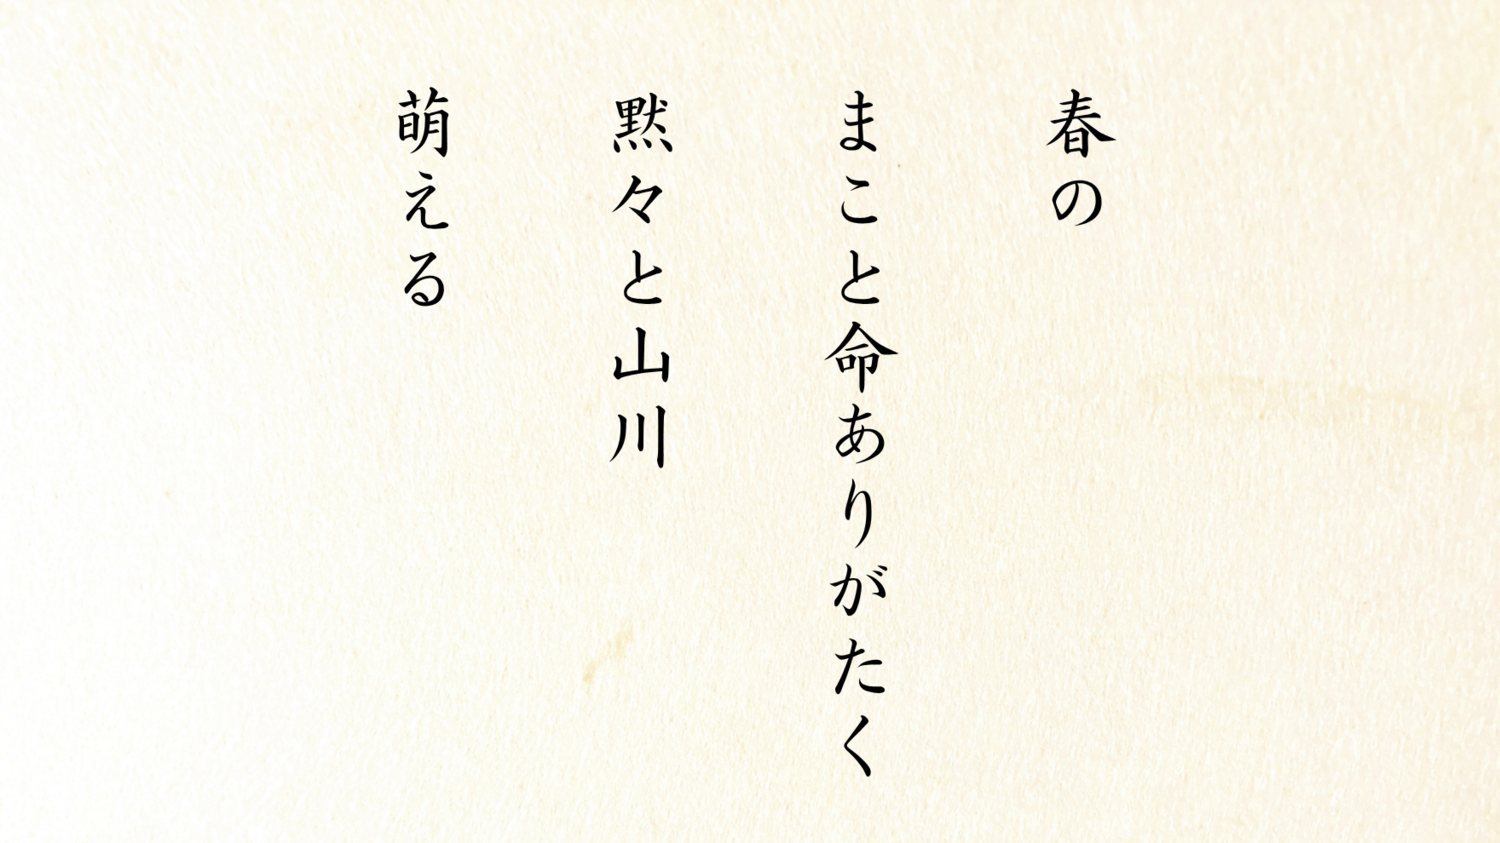 春の
まこと命ありがたく
黙々と山川
萌える